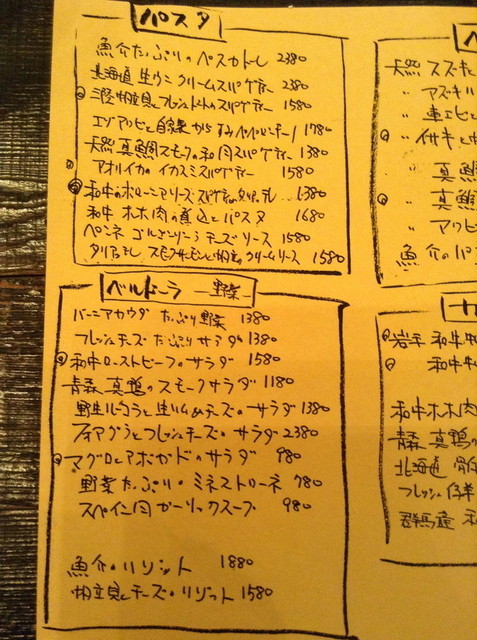 パスタ
魚介たっぷりのペスカトーレ 2380
北海道生ウニクリームスパゲティー 2380
帆立貝とフレッシュトマトのスパゲティー 1580
エゾアワビと自家製からすみ 1780
天然真鯛スモークの和風スパゲティー 1380
アオリイカのイカスミスパゲティー 1580
和牛のボローニアソース 1380
和牛ホホ肉の煮込とパスタ 1680
ペンネゴルゴンゾーラチーズソース 1580
スモークサーモンと帆立のクリームソース 1580
ベルドゥーラ —野菜—
バーニアカウダ たっぷり野菜 1380
フレッシュチーズたっぷりサラダ 1380
和牛ローストビーフのサラダ 1580
青森真鴨のスモークサラダ 1180
野生ルッコラと生ハムとチーズのサラダ 1380
フォアグラとフレッシュチーズのサラダ 2380
マグロとアボガドのサラダ 980
野菜たっぷり・ミネストローネ 780
スペイン風ガーリックスープ 980
魚介・リゾット 1880
帆立貝とチーズ・リゾット 1580
天然スズキと
〃 アズキハ
〃 車エビと
〃 イサキと
〃 真鯛
〃 真鴨
〃 アワビ
魚介のパ
岩手 和牛
和牛
和牛ホホ肉
青森 真鴨の
北海道
フレッシュ仔羊
群馬産